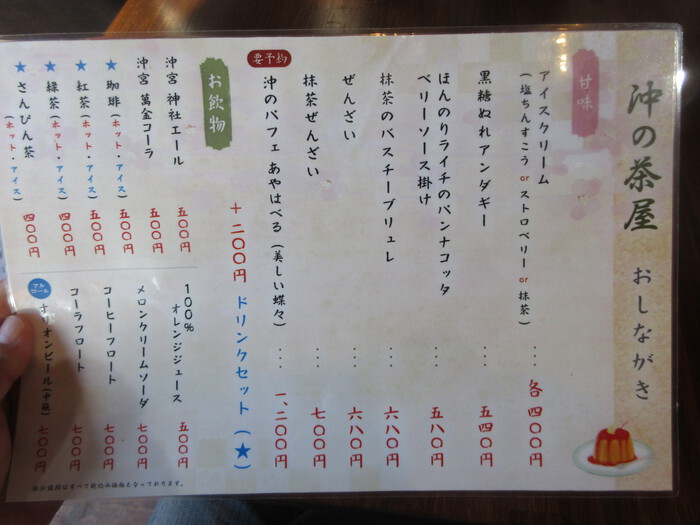 沖の茶屋 おしながき
甘味
アイスクリーム
(塩ちんすこう or ストロベリー or 抹茶) ・・・ 各四〇〇円
黒糖ぬれアンダギー ・・・ 五四〇円
ほんのりライチのパンナコッタ
ベリーソース掛け ・・・ 五八〇円
抹茶のバスチーブリュレ ・・・ 六八〇円
ぜんざい ・・・ 六八〇円
抹茶ぜんざい ・・・ 七〇〇円
要予約
沖のパフェ あやはべる (美しい蝶々) ・・・ 一、二〇〇円
+二〇〇円 ドリンクセット (★)
お飲物
沖宮 神社エール 五〇〇円
沖宮 萬金コーラ 五〇〇円
★ 珈琲 (ホット・アイス) 五〇〇円
★ 紅茶 (ホット・アイス) 五〇〇円
★ 緑茶 (ホット・アイス) 四〇〇円
★ さんぴん茶 (ホット・アイス) 四〇〇円
100% オレンジジュース 五〇〇円
メロンクリームソーダ 七〇〇円
コーヒーフロート 七〇〇円
コーラフロート 七〇〇円
アルコール
オリオンビール (中瓶) 七〇〇円
※お値段はすべて税込み価格となっております。